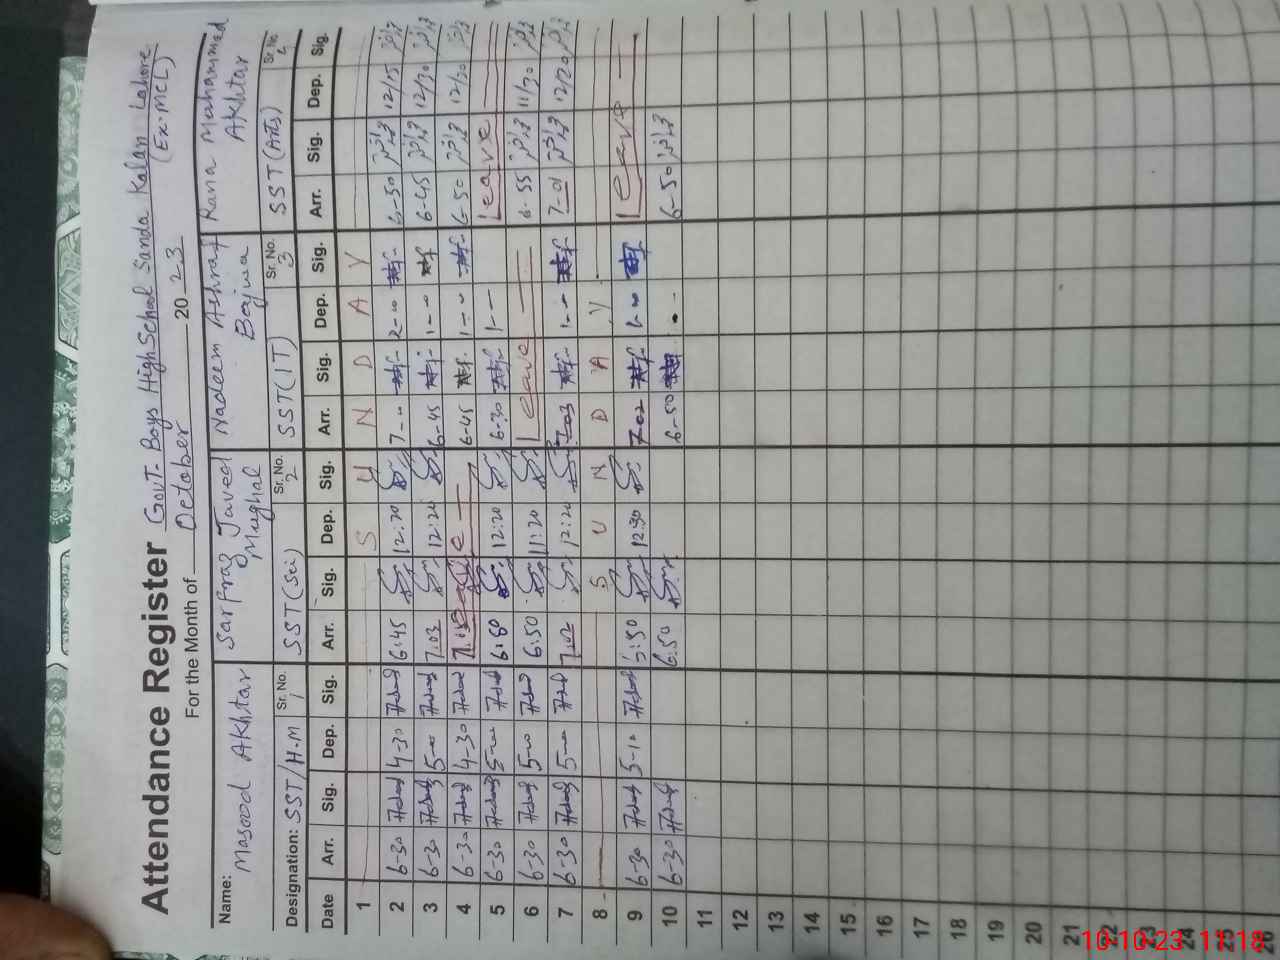 Attendance Register Govt. Boys High School Sanda Kalan Lahore
(Ex. MCL)
For the Month of October 2023
Name: Masood Akhtar Sarfraz Javed Mughal Nadeem Ashraf Bajwa Rana Muhammad Akhtar
Designation: SST/H.M Sr. No. 1 SST (Sci) Sr. No. 2 SST (IT) Sr. No. 3 SST (Arts) Sr. No. 4
Date Arr. Sig. Dep. Sig. Arr. Sig. Dep. Sig. Arr. Sig. Dep. Sig. Arr. Sig. Dep. Sig.
1 S U N D A Y
2 6-30 4-30 6:45 12:20 7-00 2-00 6-50 12/15
3 6-30 5-00 7:02 12:20 6-45 1-00 6-45 12/30
4 6-30 4-30 Leave 6-45 1-00 6-50 12/30
5 6-30 5-00 6:50 12:20 6-30 1-- Leave
6 6-30 5-00 6:50 11:20 Leave 6-55 11/30
7 6-30 5-00 7:02 12:20 7-03 1-- 7-01 12/20
8 S U N D A Y
9 6-30 5-10 12:30 7-02 2-00 Leave
10 6-30 6:50 6-50 6-50
11
12
13
14
15
16
17
18
19
20
21
22
23
24
25
26
10-10-23 11:18